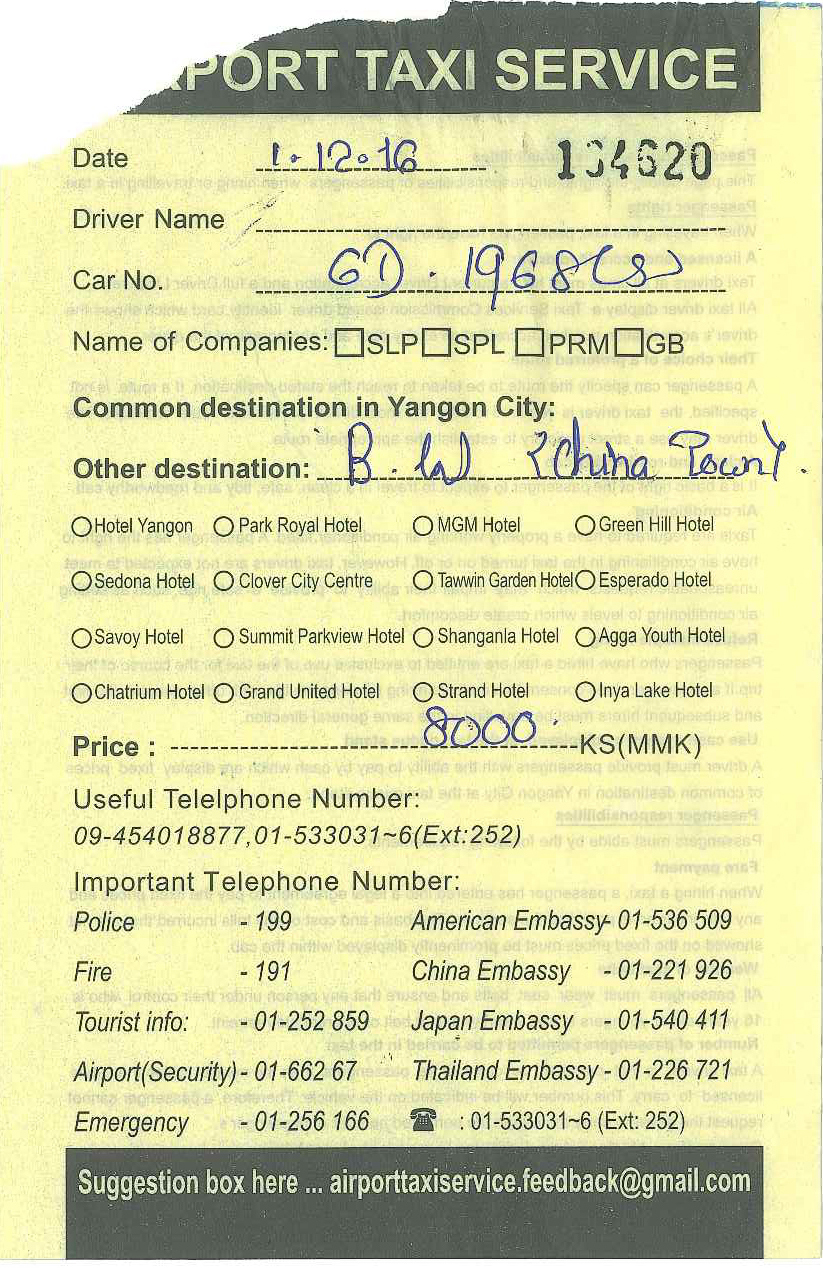 PORT TAXI SERVICE
Date 1.12.16 134620
Driver Name
Car No. 6D. 1968(S)
Name of Companies: SLP SPL PRM GB
Common destination in Yangon City:
Other destination: (China Town).
Hotel Yangon Park Royal Hotel MGM Hotel Green Hill Hotel
Sedona Hotel Clover City Centre Tawwin Garden Hotel Esperado Hotel
Savoy Hotel Summit Parkview Hotel Shanganla Hotel Agga Youth Hotel
Chatrium Hotel Grand United Hotel Strand Hotel Inya Lake Hotel
Price : 8000 KS(MMK)
Useful Telelphone Number:
09-454018877,01-533031~6(Ext:252)
Important Telephone Number:
Police - 199 American Embassy- 01-536 509
Fire - 191 China Embassy - 01-221 926
Tourist info: - 01-252 859 Japan Embassy - 01-540 411
Airport(Security) - 01-662 67 Thailand Embassy - 01-226 721
Emergency - 01-256 166 : 01-533031~6 (Ext: 252)
Suggestion box here ... airporttaxiservice.feedback@gmail.com